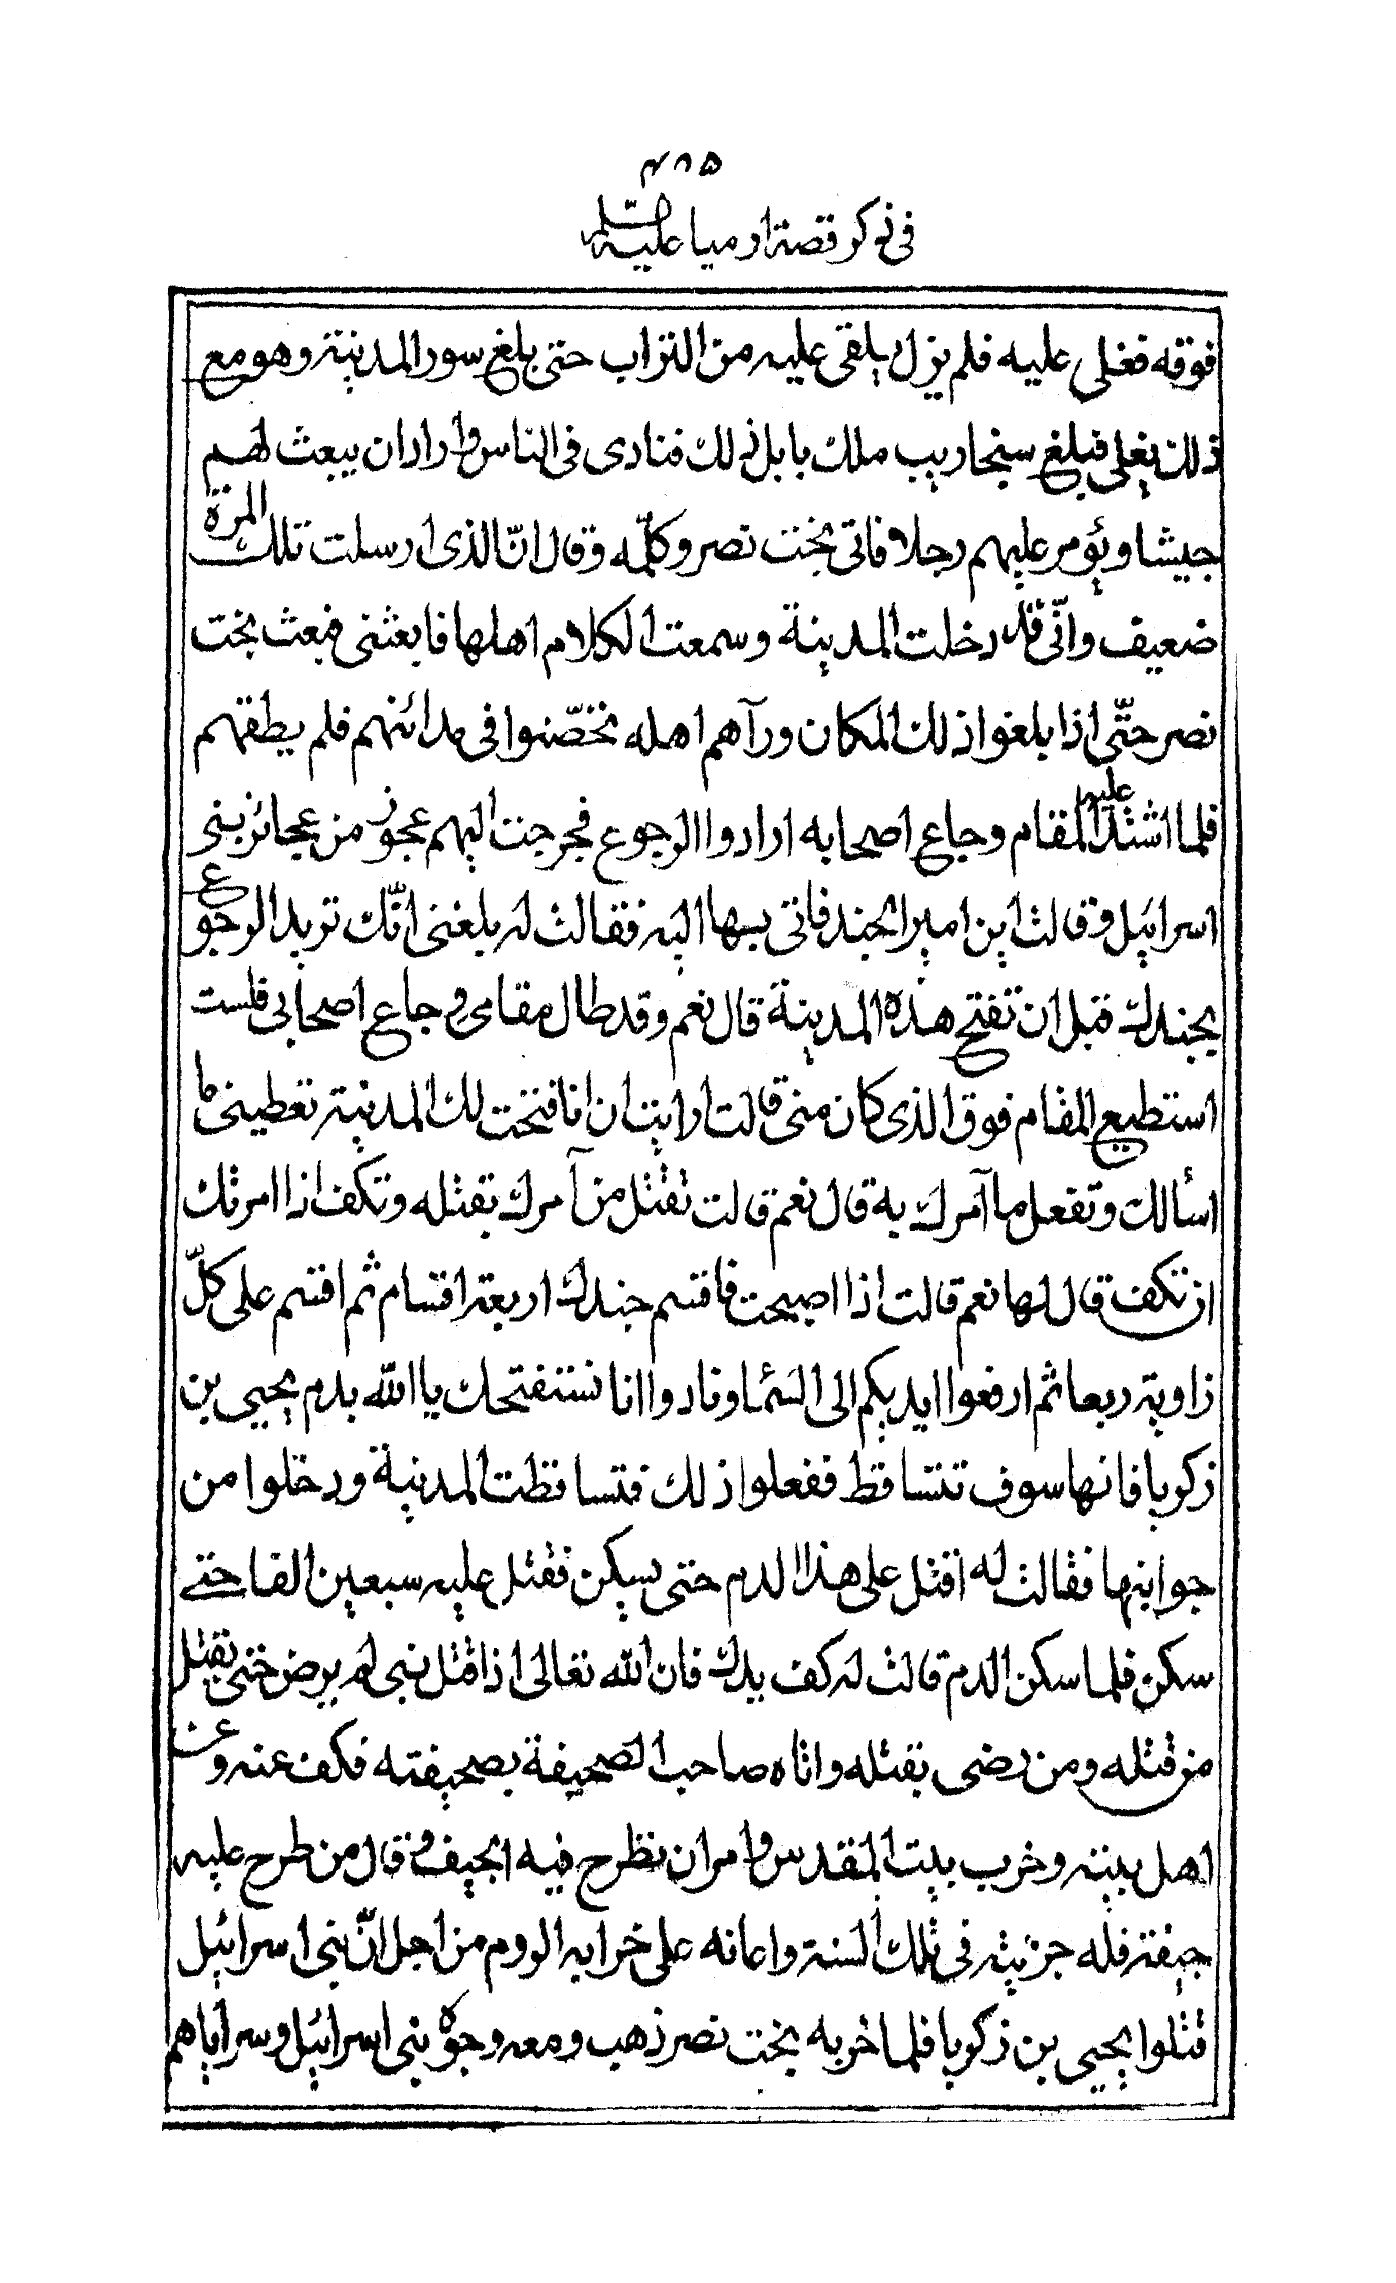 ٤٨٥
في ذكر قصة ارميا عليه السلم
فوقه فغلى عليه فلم يزل يلقى عليه من التراب حتى بلغ سور المدينة وهو مع
ذلك يغلى فبلغ سنجاريب ملك بابل ذلك فنادى فى الناس واراد ان يبعث لهم
جيشا ويؤمر عليهم رجلا فاتى بخت نصر وكلّمه وقال انّ الذى ارسلت تلك المرة
ضعيف وانّى قد دخلت المدينة وسمعت الكلام اهلها فابعثنى فبعث بخت
نصر حتّى اذا بلغوا ذلك المكان ورآهم اهله تحصّنوا فى مدائنهم فلم يطقهم
فلما اشتد عليهم المقام وجاع اصحابه ارادوا الرجوع فخرجت اليهم عجوز من عجائز بنى
اسرائيل وقالت اين امير الجند فاتى بها اليه فقالت له بلغنى انّك تريد الرجوع
بجندك قبل ان تفتح هذه المدينة قال نعم وقد طال مقامى وجاع اصحابى فلست
استطيع المقام فوق الذى كان منى قالت ارايت ان انا فتحت لك المدينة تعطينى ما
اسألك وتفعل ما آمرك به قال نعم قالت تقتل من آمرك بقتله وتكف اذا امرتك
ان تكف قال لها نعم قالت اذا اصبحت فاقسم جندك اربعة اقسام ثم اقسم على كلّ
زاوية ربعا ثم ارفعوا ايديكم الى السّماء ونادوا انا نستفتحك يا الله بدم يحيى بن
زكريا فانها سوف تتساقط ففعلوا ذلك فتساقطت المدينة ودخلوا من
جوانبها فقالت له اقتل على هذا الدم حتى يسكن فقتل عليه سبعين الفا حتى
سكن فلما سكن الدم قالت له كف يدك فان الله تعالى اذا قتل نبى لم يرض حتى يقتل
من قتله ومن رضى بقتله واتاه صاحب الصّحيفة بصحيفته فكف عنه وعن
اهل بيته وخرب بيت المقدس وامر ان تطرح فيه الجيف وقال من طرح عليه
جيفة فله جزيته فى تلك السّنة واعانه على خرابه الروم من اجل انّ بنى اسرائيل
قتلوا يحيى بن زكريا فلما اخربه بخت نصر ذهب ومعه وجوه بنى اسرائيل وسراياهم